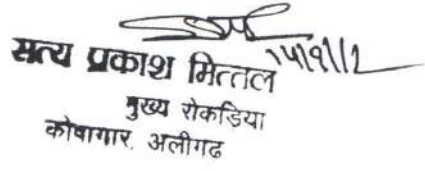 सत्य प्रकाश मित्तल
मुख्य रोकडिया
कोषागार, अलीगढ